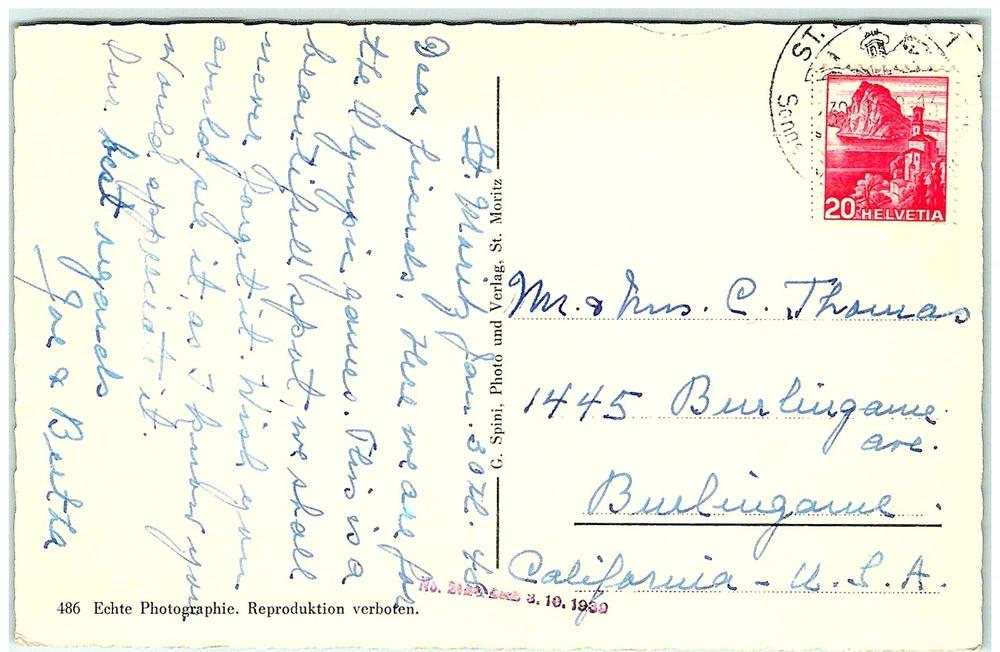 St. Moritz Jan. 30th. 48
Dear friends. Here we are for
the Olympic games. This is a
beautifull spot, we shall
never forget it. Wish you
could see it, as I know you
would appreciate it.
Our best regards
Joe & Bertha
G. Spini, Photo und Verlag, St. Moritz
486 Echte Photographie. Reproduktion verboten.
3.10.1939
ST.
20 HELVETIA
Mr. & Mrs. C. Thomas
1445 Burlingame
ave.
Burlingame
California - U.S.A.